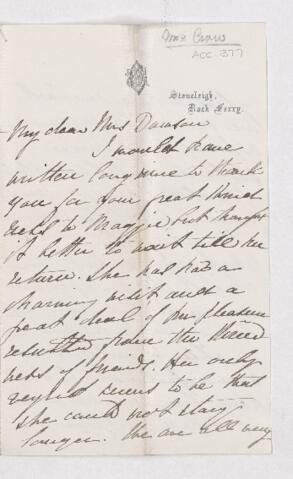 Mrs Crows
ACC. 377
Stoneleigh,
Rock Ferry.
My dear Mrs Dawson
I would have
written long since to thank
you for your great kind
ness to Maggie but thought
it better to wait till her
return. She has had a
charming visit and a
great deal of our pleasure
resulted from the kind
ness of friends. Her only
regret seems to be that
she could not stay
longer. We are all very